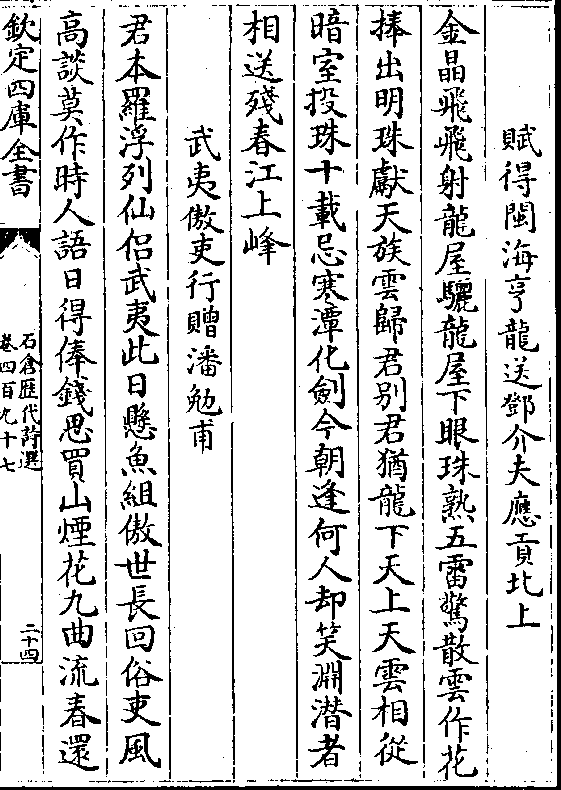 賦得閩海亨龍送鄧介夫應貢北上
金晶飛飛射龍屋驪龍屋下眼珠熟五雷驚散雲作花
捧出明珠獻天族雲歸君别君猶龍下天上天雲相從
暗室投珠十載忌寒潭化劍今朝逢何人却笑淵潜者
相送殘春江上峰
武夷傲吏行贈潘勉甫
君本羅浮列仙侣武夷此日懸魚組傲世長回俗吏風
高談莫作時人語日得俸錢思買山煙花九曲流春還
欽定四庫全書
石倉歴代詩選
卷四百九十七
二十四